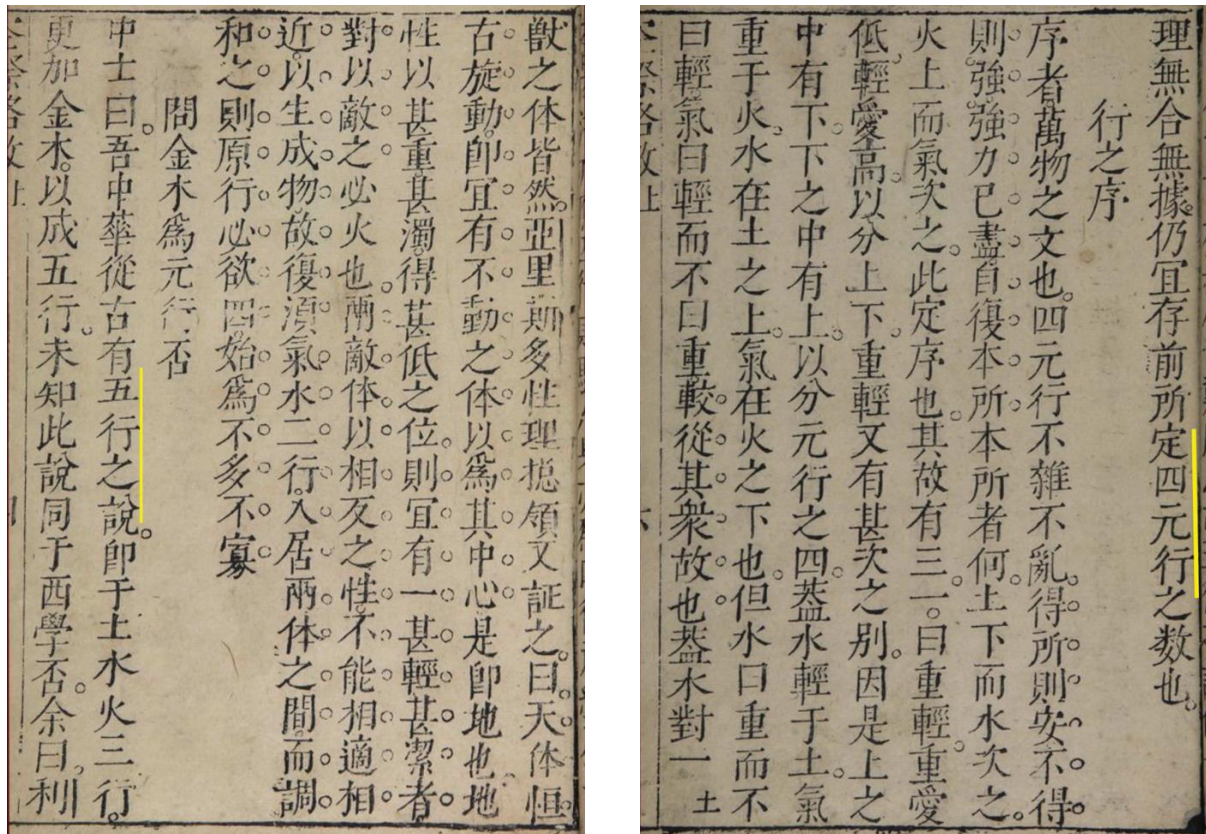 獸之体皆然。亞里斯多性理揔領又証之曰。天体恒
右旋動。卽宜有不動之体以為其中心是卽地也。地
性以甚重甚濁。得甚低之位。則宜有一甚輕甚潔者
對以敵之必火也。兩敵体以相反之性。不能相適相
近。以生成物故復湏氣水二行。入居兩体之間。而調
和之。則原行必欲四。始為不多不寡
問金木為元行否
中士曰。吾中華從古有五行之說。卽于土水火三行。
更加金木。以成五行。未知此說同于西學否。余曰。利
理無合無據。仍宜存前所定四元行之数也。
行之序
序者萬物之文也。四元行不雜不亂。得所則安。不得
則強。強力已盡。自復本所。本所者何。上下而水次之。
火上而氣次之。此定序也。其故有三。一曰重輕。重愛
低。輕愛高。以分上下。重輕又有甚次之別。因是上之
中有下。下之中有上。以分元行之四。葢水輕于土。氣
重于火。水在土之上。氣在火之下也。但水曰重而不
曰輕。氣曰輕而不曰重。較從其衆故也。葢水對一土